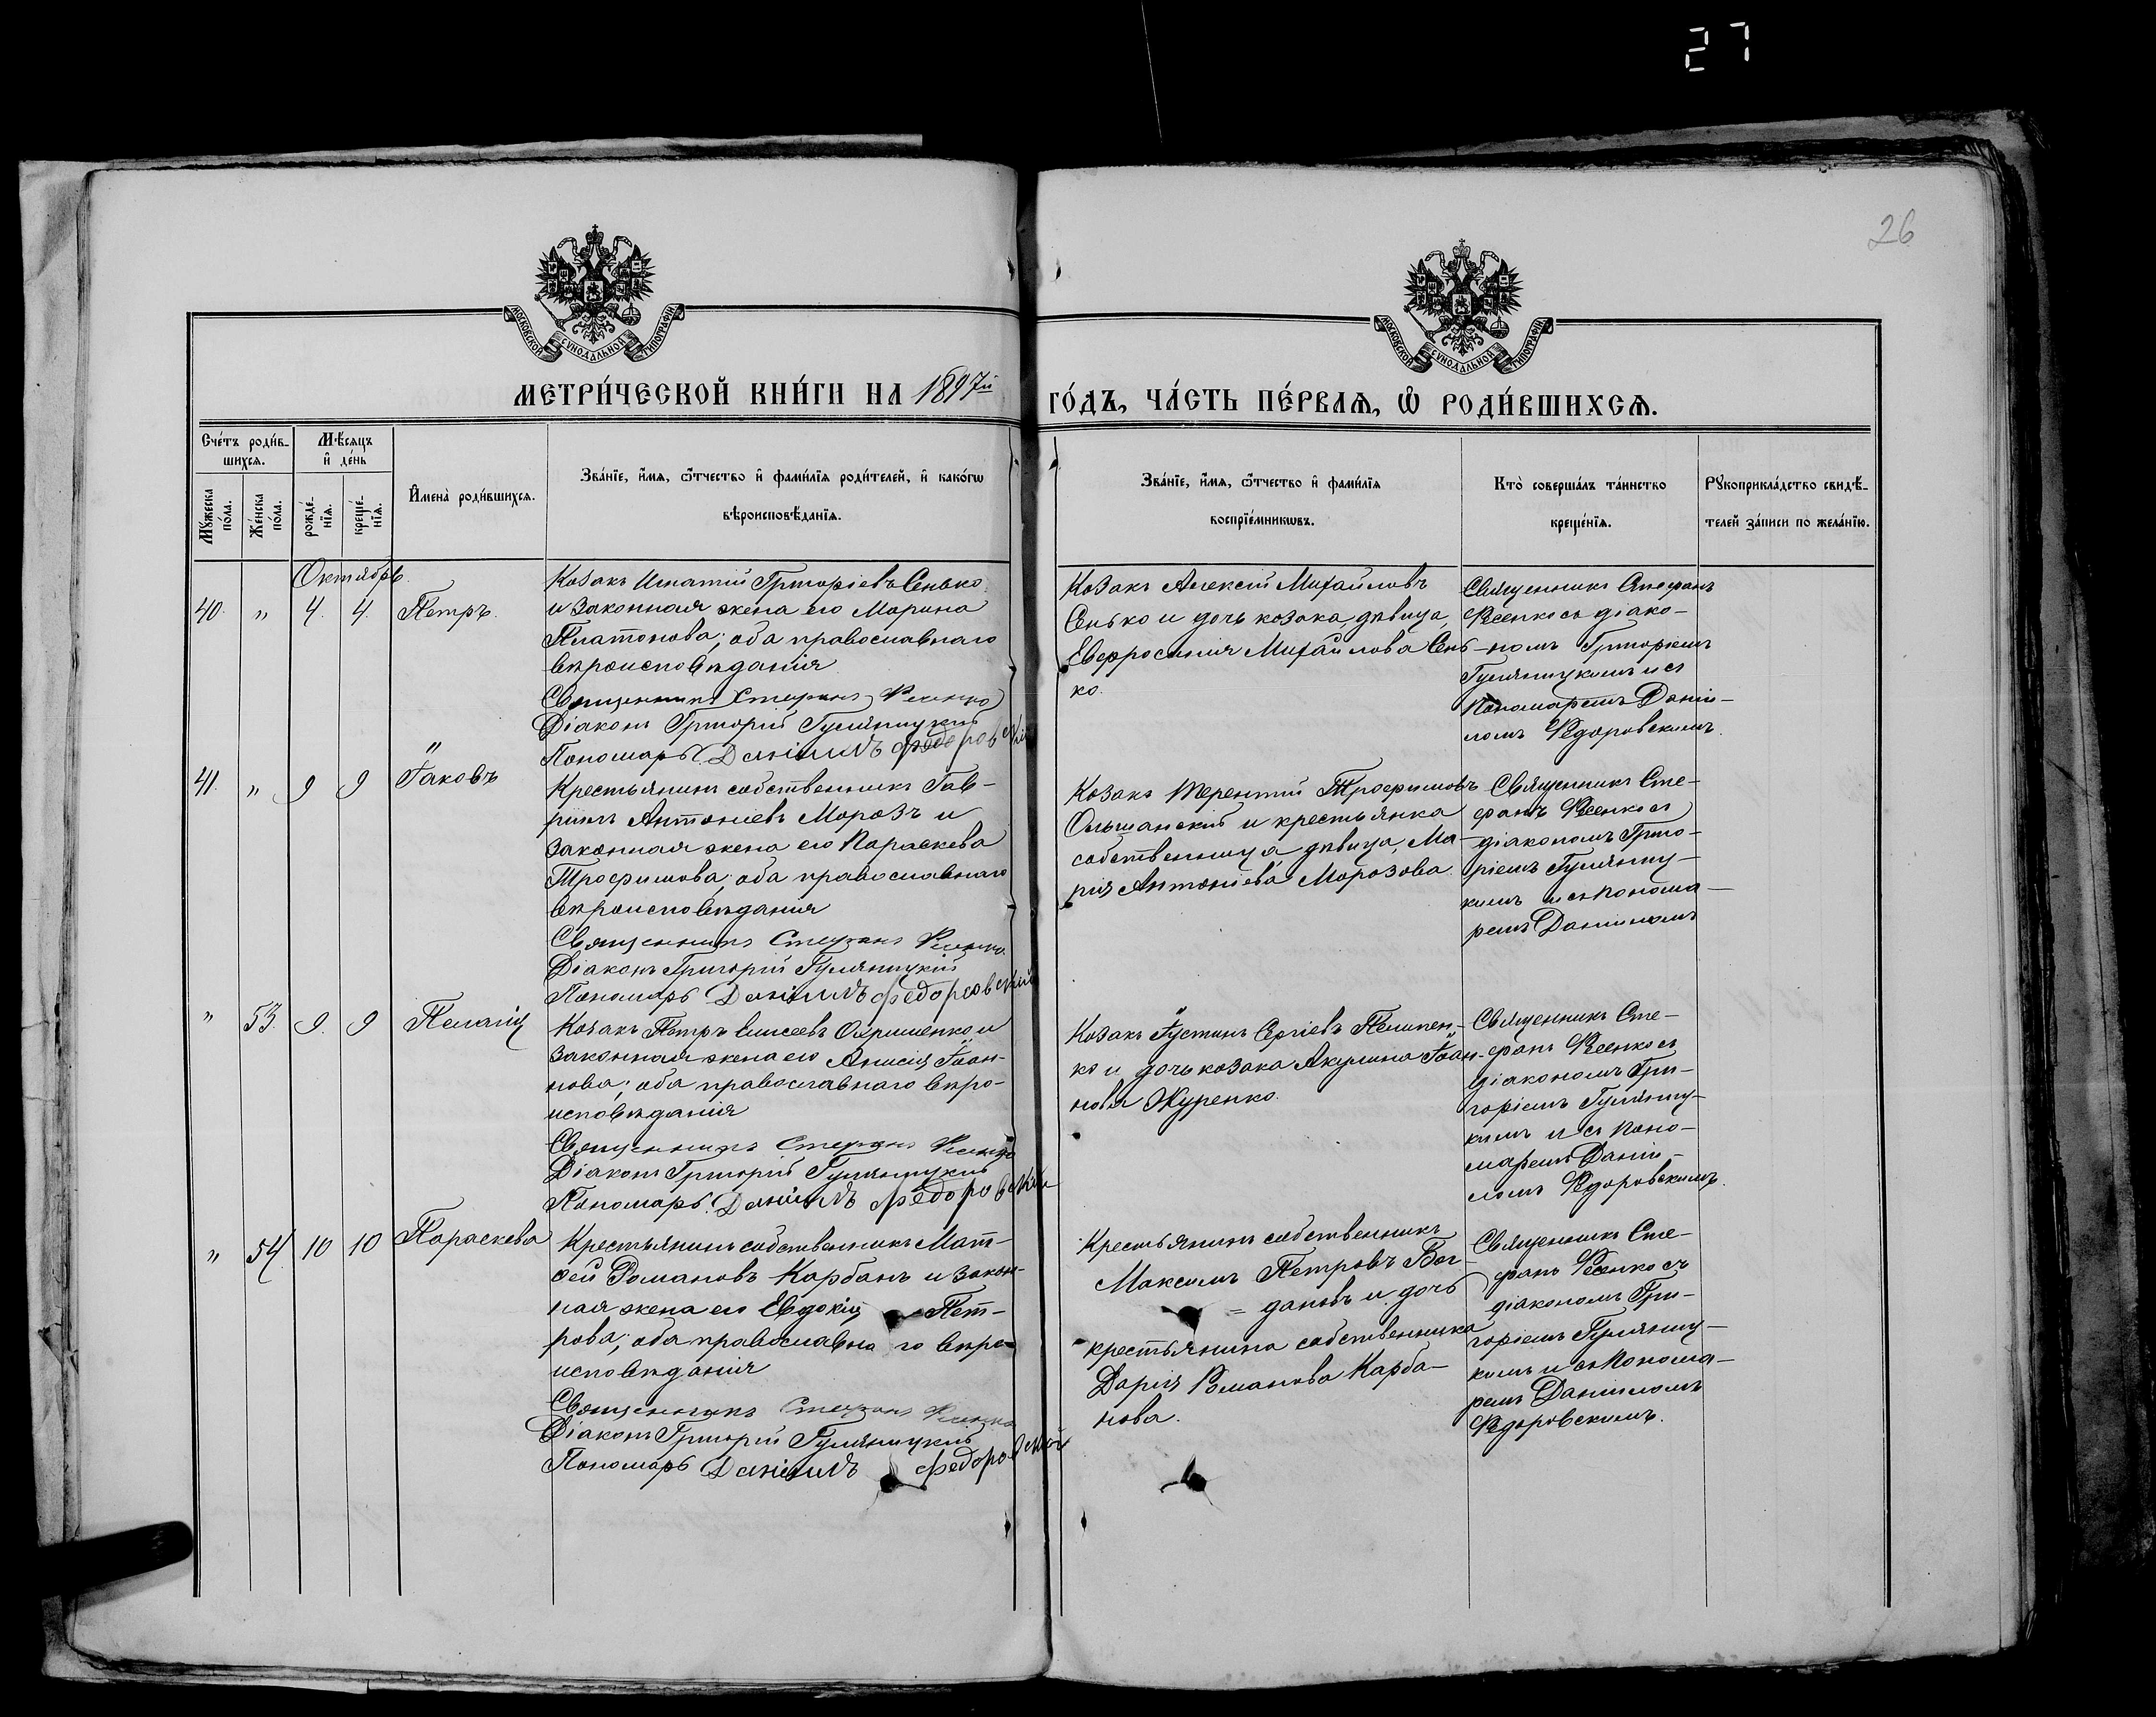 27
26
МОСКОВСКОЙ СѴНОДАЛЬНОЙ ТИПОГРАФІИ
МОСКОВСКОЙ СѴНОДАЛЬНОЙ ТИПОГРАФІИ
МЕТРИ́ЧЕСКОЙ КНИ́ГИ НА 1897й
ГО́ДЪ, ЧА́СТЬ ПЕ́РВАѦ, Ѡ РОДИ́ВШИХСѦ.
Сче́тъ роди́в-
шихсѧ.
Мѣ́сѧцъ
и҆ де́нь
Мꙋ́жеска по́ла.
Же́нска по́ла.
рожде́-
нїѧ.
креще́-
нїѧ.
И҆мена̀ роди́вшихсѧ.
Зва́нїе, и҆́мѧ, ѻ҆́тчество и҆ фами́лїѧ роди́телей, и҆ како́гѡ
вѣроисповѣ́данїѧ.
Зва́нїе, и҆́мѧ, ѻ҆́тчество и҆ фами́лїѧ
воспрїе́мникѡвъ.
Кто̀ соверша́лъ та́инство
креще́нїѧ.
Рꙋкоприкла́дство свидѣ́-
телей за́писи по жела́нїю.
Октябрь.
40. „ 4. 4. Петръ.
Козакъ Игнатій Григоріевъ Сенько
и законная жена его Марина
Платонова; оба православнаго
вѣроисповѣданія
Священникъ Стефанъ
Діаконъ Григорій Гуляницкій
Пономарь Даніилъ Федоровскій
Козакъ Алексій Михайловъ
Сенько и дочь козака, дѣвица,
Евфросинія Михайлова Сень-
ко.
Священникъ Стефанъ
съ діако-
номъ Григоріемъ
Гуляницкимъ и съ
пономаремъ Даніи-
ломъ Ѳедоровскимъ.
41. „ 9 9 Іаковъ
Крестьянинъ собственникъ Гав-
риилъ Антоніевъ Морозъ и
законная жена его Параскева
Трофимова; оба православнаго
вѣроисповѣданія
Священникъ Стефанъ
Діаконъ Григорій Гуляницкій
Пономарь Даніилъ Федоровскій
Козакъ Терентій Трофимовъ
Ольшанскій и крестьянка
собственница, дѣвица, Ма-
рія Антоніева Морозова.
Священникъ Сте-
фанъ съ
діакономъ Григо-
ріемъ Гуляниц-
кимъ и съ понома-
ремъ Даніиломъ
„ 53. 9. 9 Пелагія
Козакъ Петръ Елисеевъ Охрименко и
законная жена его Анисія Іоан-
нова; оба православнаго вѣро-
исповѣданія
Священникъ Стефанъ
Діаконъ Григорій Гуляницкій
Пономарь Даніилъ Федоровскій
Козакъ Іустинъ Сергіевъ Пелипен-
ко и дочь козака Акулина Іоан-
нова Журенко.
Священникъ Сте-
фанъ съ
діакономъ Гри-
горіемъ Гуляниц-
кимъ и съ поно-
маремъ Даніи-
ломъ Ѳедоровскимъ.
„ 54. 10 10 Параскева
Крестьянинъ собственникъ Мат-
ѳей Романовъ Карбанъ и закон-
ная жена его Евдокія Пет-
рова; оба православнаго вѣро-
исповѣданія
Священникъ Стефанъ
Діаконъ Григорій Гуляницкій
Пономарь Даніилъ Федоровский
Крестьянинъ собственникъ
Максимъ Петровъ Бог-
=дановъ и дочь
крестьянина собственника
Дарія Романова Карба-
нова.
Священникъ Сте-
фанъ съ
діакономъ Гри-
горіемъ Гуляниц-
кимъ и съ понома-
ремъ Даніиломъ
Ѳедоровскимъ.